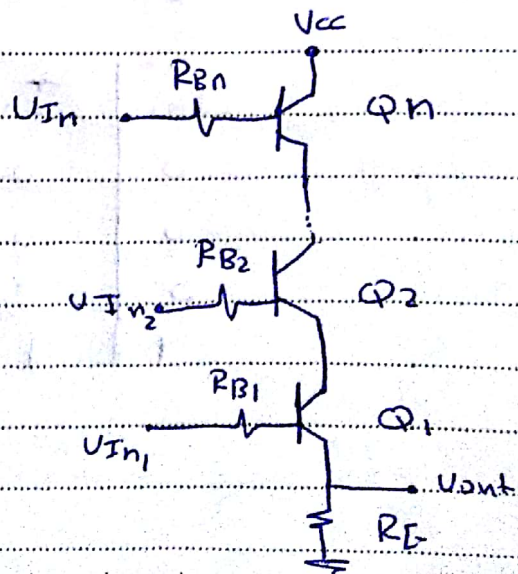 Vcc
RBn
UIn Qn
RB2
UIn2 Q2
RB1
UIn1 Q1
Uout
RE